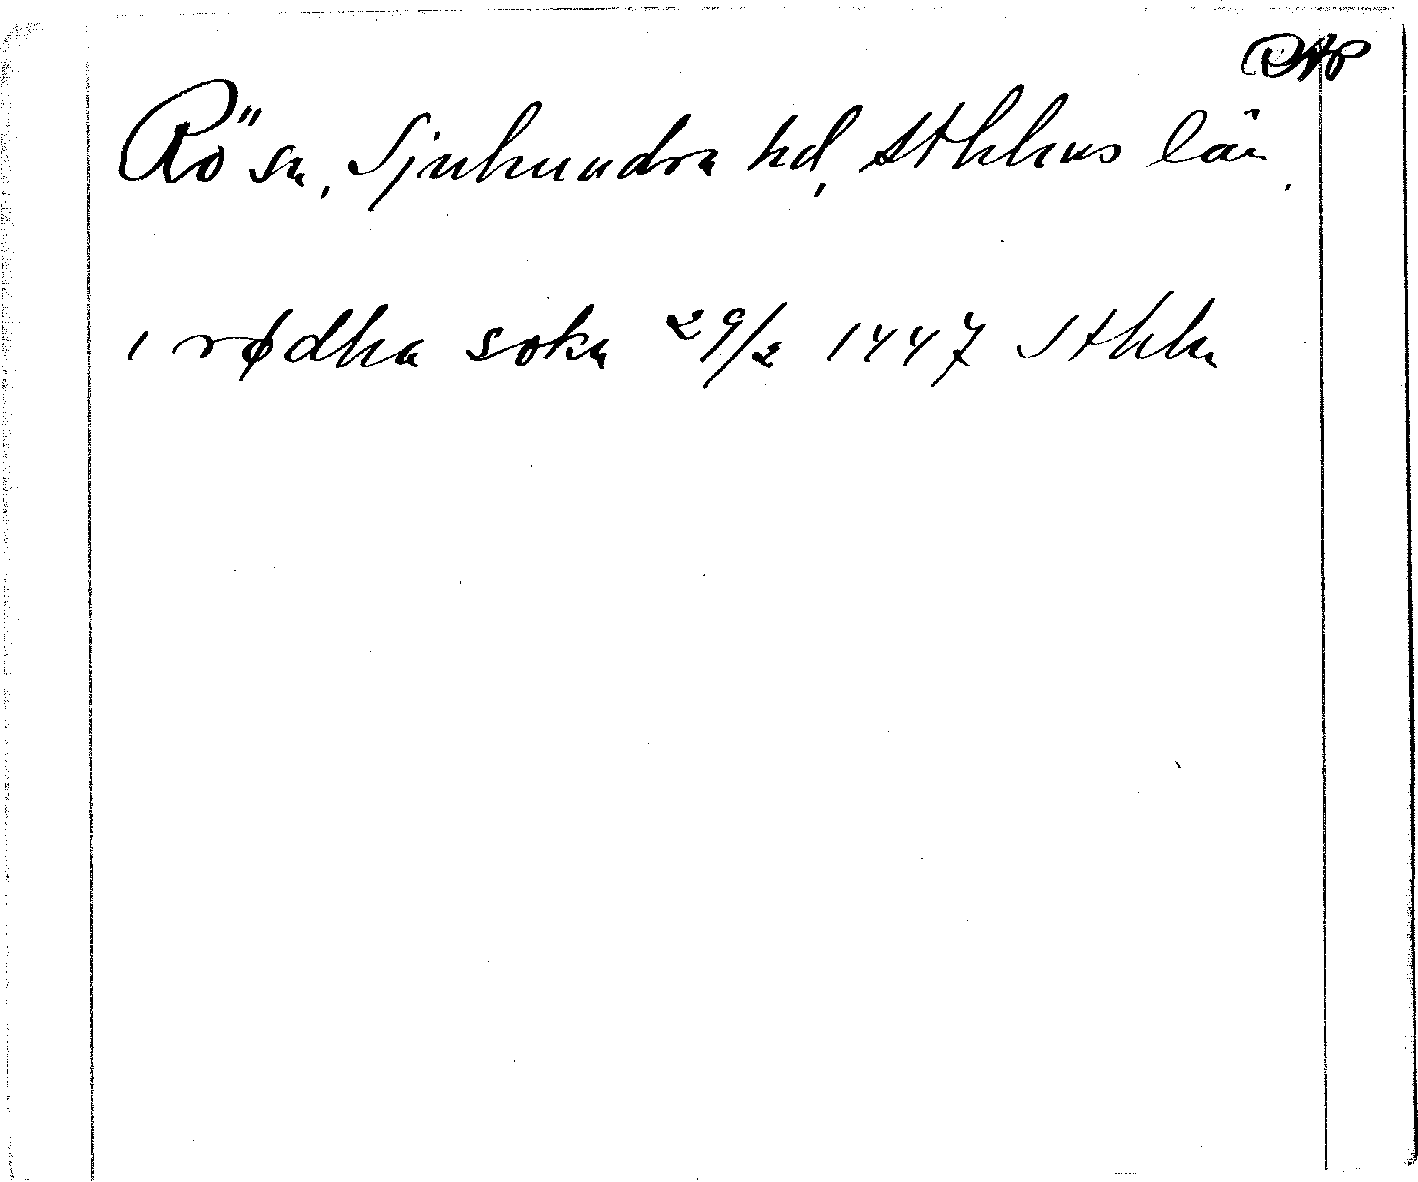 Rö sn, Sjuhundra hd, Sthlms län.
i rødha sokn 29/2 1447 Sthlm